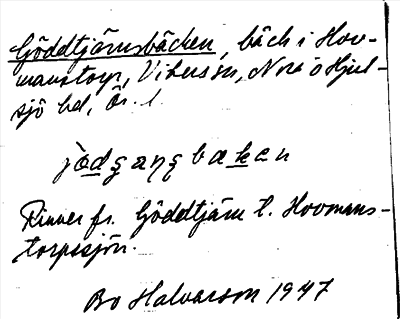 Göddtjärnsbäcken, bäck i Hov-
manstorp, Vikers sn, Nora o Hjul-
sjö hd, Ör. l.
Rinner fr. Göddtjärn t. Hovmans-
torpssjön.
Bo Halvarson 1947